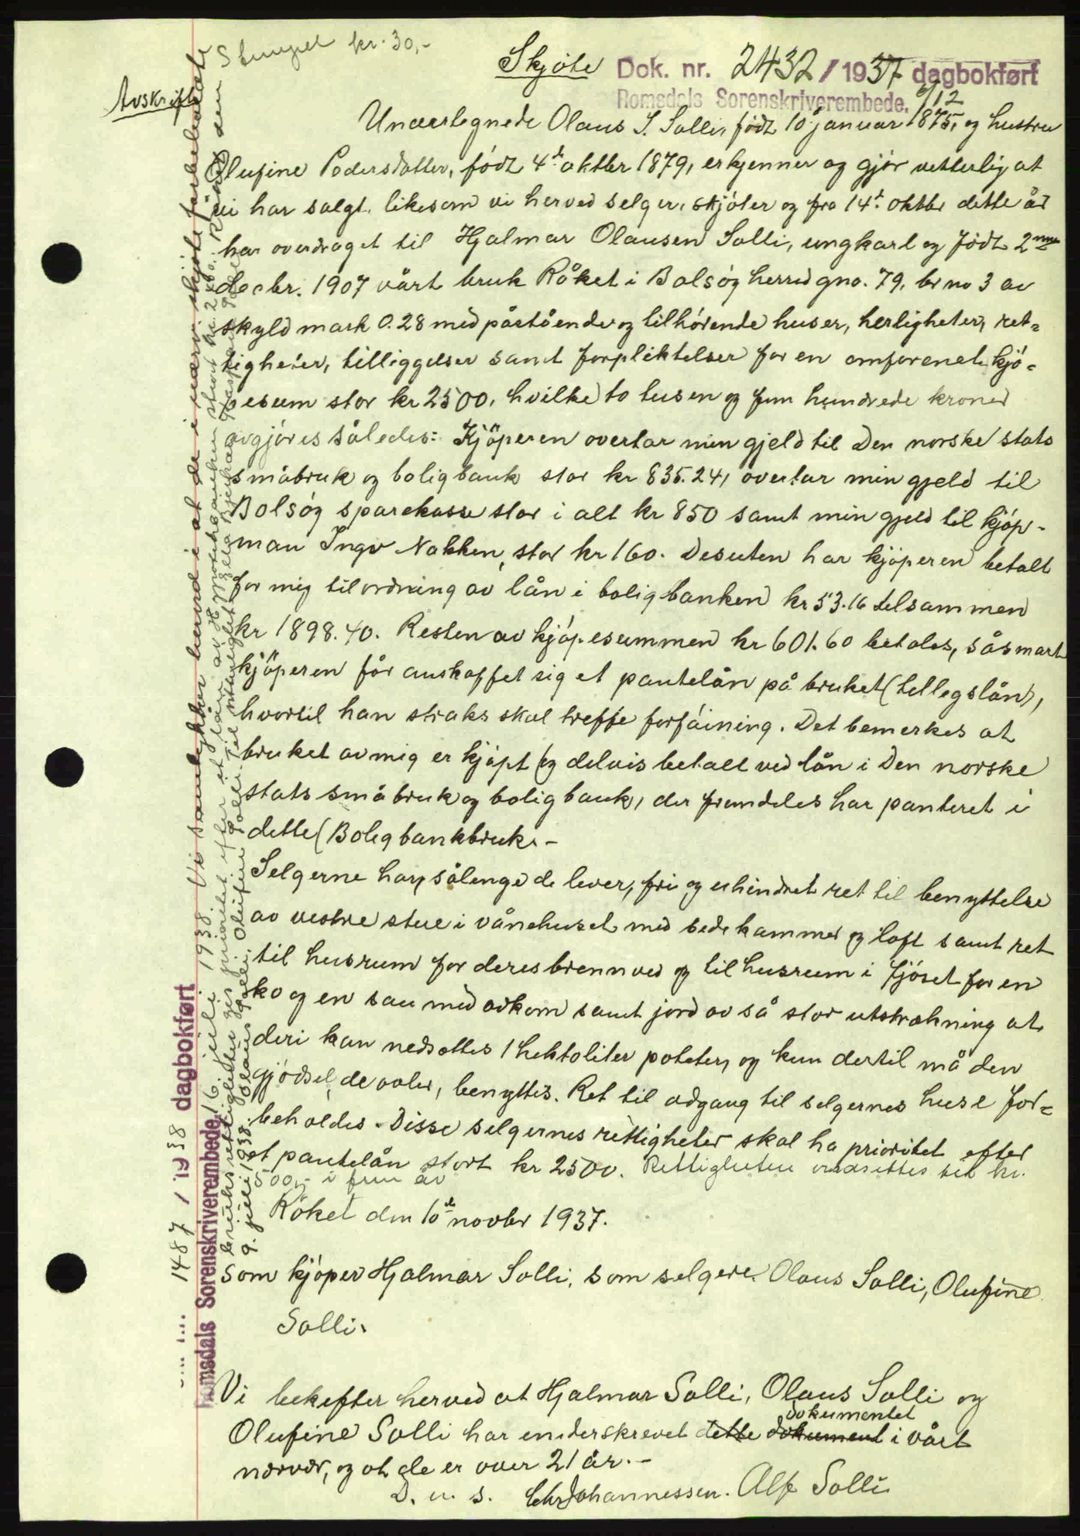 Stempel kr. 30,-
Avskrift
Skjöte
Dok. nr. 2432 / 1937 dagbokført
Romsdals Sorenskriverembede. 6/12
Undertegnede Olaus S. Solli, född 10 januar 1875, og hustru
Olufine Pedersdatter, född 4de oktbr 1879, erkjenner og gjör vetterlig at
vi har solgt, likesom vi herved selger, skjöter og fra 14de oktbr dette år
har overdraget til Hjalmar Olausen Solli, ungkarl og född 2nen
decbr. 1907 vårt bruk Röket i Bolsöy herred gno. 79, br no 3 av
skyld mark 0.28 med påstående og tilhörende huser, herligheter, ret-
tigheter, tilliggelser samt forpliktelser for en omforenet kjö-
pesum stor kr 2500, hvilke to tusen og fem hundrede kroner
avgjöres således: Kjöperen overtar min gjeld til Den norske stats
småbruk og boligbank stor kr 835.24, overtar min gjeld til
Bolsöy sparekasse stor i alt kr 850 samt min gjeld til kjöp-
man Ingv Nakken, stor kr 160. Desuten har kjöperen betalt
for mig til ordning av lån i boligbanken kr 53.16 tilsammen
kr 1898.40. Resten av kjöpesummen kr 601.60 betales, såsnart
kjöperen får anskaffet sig et pantelån på bruket (tillegslån),
hvortil han straks skal treffe forföining. Det bemerkes at
bruket av mig er kjöpt og delvis betalt ved lån i Den norske
stats småbruk og boligbank, der fremdeles har panteret i
dette (Boligbankbruk. -
Selgerne har, sålenge de lever, fri og uhindret ret til benyttelse
av vestre stue i vånehuset med sidekammer og loft samt ret
til husrum for deres brennved og til husrum i fjöset for en
ko og en sau med avkom samt jord av så stor utstrækning at
deri kan nedsettes 1 hektoliter poteter, og kun dertil må den
gjödsel, de avler, benyttes. Ret til adgang til selgernes huse for-
beholdes. Disse selgernes rettigheter skal ha prioritet efter
et pantelån stort kr 2500. Rettigheten verdsettes til kr.
500,- i fem år
Röket den 10de novbr 1937.
Som kjöper Hjalmar Solli, som selgere Olaus Solli, Olufine
Solli.
Vi bekrefter herved at Hjalmar Solli, Olaus Solli og
Olufine Solli har underskrevet dette dokument dokumentet i vårt
nærvær, og at de er over 21 år. -
D. u. s. Chr Johannessen. Alf Solli
1487 / 1938 dagbokført
Romsdals Sorenskriverembede. 16. juli 1938. Vi samtykker herved i at de i nærv. skjöte forbeholdte
9. juli 1938. Olaus Solli. Olufine Solli.